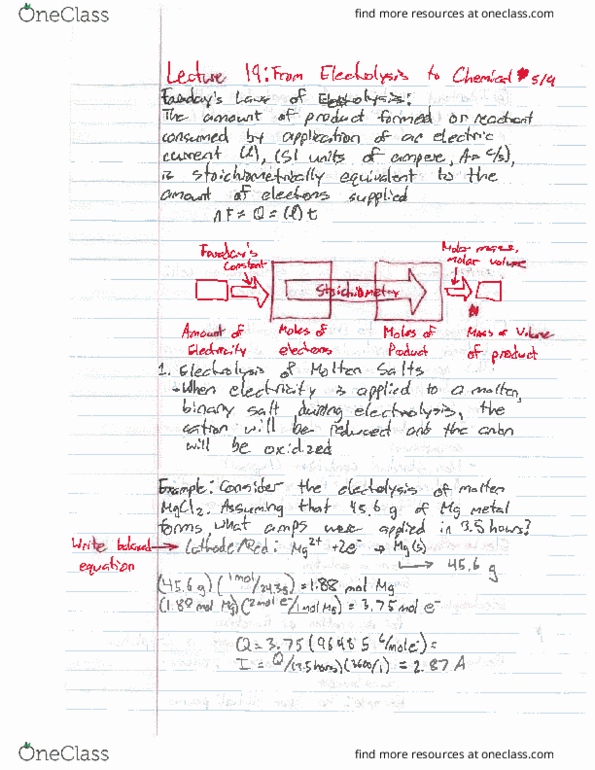 OneClass
find more resources at oneclass.com
Lecture 19: From Electrolysis to Chemical 5/9
Faraday's Law of Electrolysis:
The amount of product formed or reactant
consumed by application of an electric
current (I), (SI units of ampere, A = C/s),
is stoichiometrically equivalent to the
amount of electrons supplied
nF = Q = (I) t
Faraday's Constant
Stoichiometry
Molar mass, molar volume
Amount of Electricity
Moles of electrons
Moles of Product
Mass or Volume of product
1. Electrolysis of Molten Salts
When electricity is applied to a molten,
binary salt during electrolysis, the
cation will be reduced and the anion
will be oxidized
Example: Consider the electrolysis of molten
MgCl2. Assuming that 45.6 g of Mg metal
forms what amps were applied in 3.5 hours?
Write balanced equation
Cathode/Red: Mg²⁺ + 2e⁻ → Mg(s)
45.6 g
(45.6 g)(1mol/24.3g) = 1.88 mol Mg
(1.88 mol Mg)(2mol e⁻/1mol Mg) = 3.75 mol e⁻
Q = 3.75 (96485 C/mole⁻) =
I = Q/(3.5 hours)(3600/1) = 2.87 A
OneClass
find more resources at oneclass.com